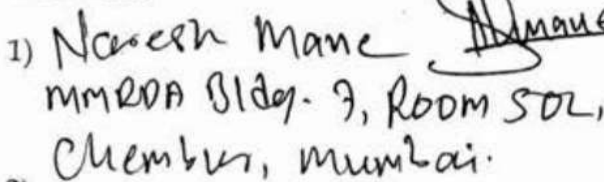 1) Naresh Mane
MMRDA Bldg. 7, Room 502,
Chembur, Mumbai.